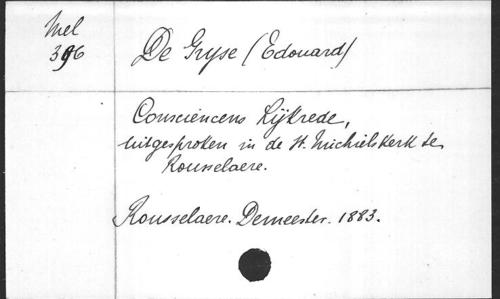 Mel
396
De Gryse (Edouard)
Consciencens Lijkrede,
uitgesproken in de St. Michielskerk te
Rousselaere.
Rousselaere. Demeester. 1883.